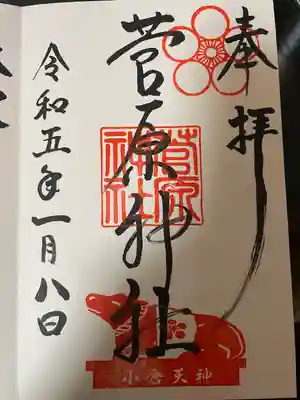 奉拝
菅原神社
菅原神社
小倉天神
令和五年一月八日